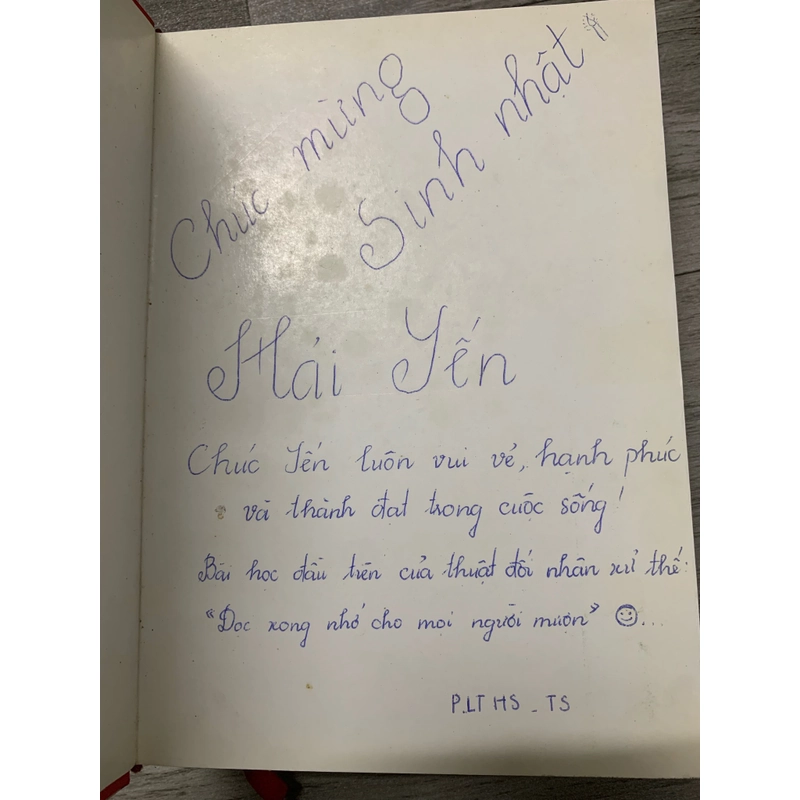 Chúc mừng
Sinh nhật
Hải Yến
Chúc Yến luôn vui vẻ, hạnh phúc
và thành đạt trong cuộc sống!
Bài học đầu tiên của thuật đối nhân xử thế:
"Đọc xong nhớ cho mọi người mượn" ☺...
P.LT HS - TS